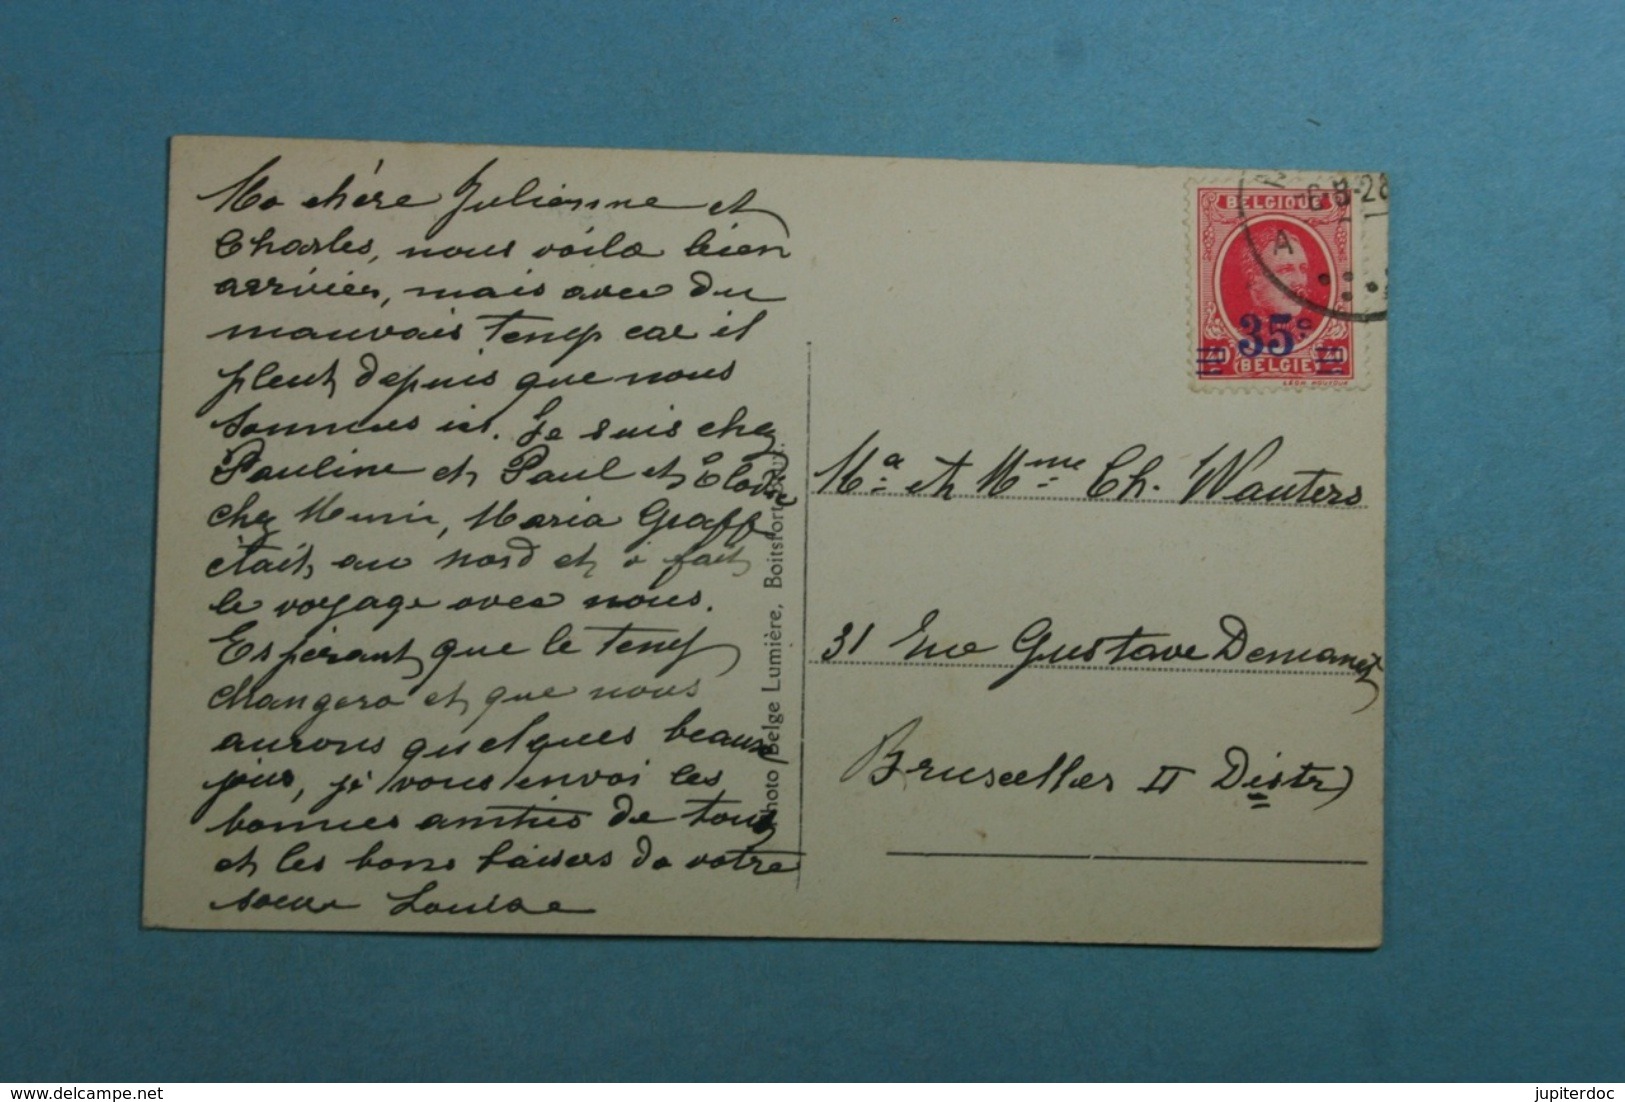 Ma chère Julienne et
Charles, nous voila bien
arrivées, mais avec du
mauvais temp car il
pleut depuis que nous
sommes ici. Je suis chez
Pauline et Paul et Elodie
chez Mimie, Maria Graff
était au nord et a fait
le voyage avec nous.
Espérant que le temp
changera et que nous
aurons quelques beaux
jours, je vous envoi les
bonnes amitiés de tous
et les bons baisers de votre
soeur Louise
Photo Belge Lumière, Boitsfort-Brux.
BELGIQUE
6-8-28
A
35c
40 40
BELGIE
LÉON HOUYOUX
Ma et Mme Ch. Wauters
31 Rue Gustave Demanet
Bruxelles II Distr
jupiterdoc